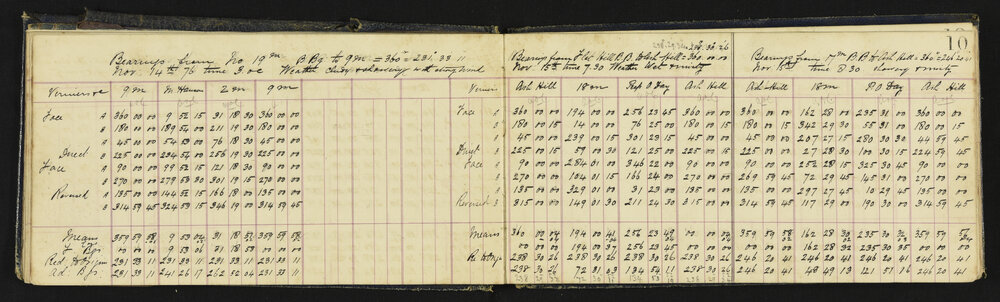 10
Bearings from No 19 m B Bg to 9 m = 360° = 231. 33 11
Nov. 14th 76 time 3 oc Weather Cloudy & showery with strong wind
Verniers 9 m 2 m 9 m
Face A 360 00 00 9 52 15 31 18 30 360 00 00
B 180 00 00 189 54 00 211 19 30 180 00 00
A 45 00 00 54 53 00 76 18 30 45 00 00
Direct B 225 00 00 234 54 00 256 19 30 225 00 00
Face A 90 00 00 99 52 15 121 18 30 90 00 00
B 270 00 00 279 53 30 301 19 15 270 00 00
Reversed A 135 00 00 144 52 15 166 18 00 135 00 00
B 314 59 45 324 53 15 346 19 00 314 59 45
Means 359 59 58 9 53 04 31 18 52 359 59 58
00 00 00 9 53 06 31 18 53 00 00 00
231 33 11 231 33 11 231 33 11 231 33 11
ad. Bgs. 231 33 11 241 26 17 262 52 04 231 33 11
238. 30. 26
Bearings from Flat Hill B B to Ash Hill = 360. 00. 00
Nov. 15th time 7.30 Weather Wet & misty
Verniers Ash Hill 18 m Rep O Day Ash Hill
Face A 360 00 00 194 00 00 256 23 45 360 00 00
B 180 00 15 14 00 00 76 25 00 180 00 15
A 45 00 00 239 00 15 301 23 15 45 00 00
Direct B 225 00 15 59 00 30 121 25 00 225 00 15
Face A 90 00 00 284 01 00 346 22 00 90 00 00
B 270 00 00 104 01 15 166 24 00 270 00 00
A 135 00 00 329 01 00 31 23 00 135 00 00
Reversed B 315 00 00 149 01 30 211 24 30 315 00 00
Means 360 00 04 194 00 41 256 23 49 00 00 04
00 00 00 194 00 37 256 23 45 00 00 00
238 30 26 238 30 26 238 30 26 238 30 26
238 30 26 72 31 03 134 54 11 238 30 26
Bearings from 17 m B B to Ash Hill = 360° = 246 20 41
Nov. 15th time 8 30 showery & misty
Ash Hill 18 m P O Day Ash Hill
360 00 00 162 28 00 235 31 00 360 00 00
180 00 15 342 29 30 55 31 00 180 00 15
45 00 00 207 27 15 280 30 00 44 59 45
225 00 00 27 28 30 100 30 15 224 59 45
90 00 00 252 28 15 325 30 45 90 00 00
269 59 45 72 29 45 145 31 00 270 00 00
135 00 00 297 27 45 10 29 45 135 00 00
314 59 45 117 29 00 190 30 00 314 59 45
359 59 58 162 28 30 235 30 359 59 56
00 00 00 162 28 32 235 30 35 00 00 00
246 20 41 246 20 41 246 20 41 246 20 41
246 20 41 48 49 13 121 51 16 246 20 41